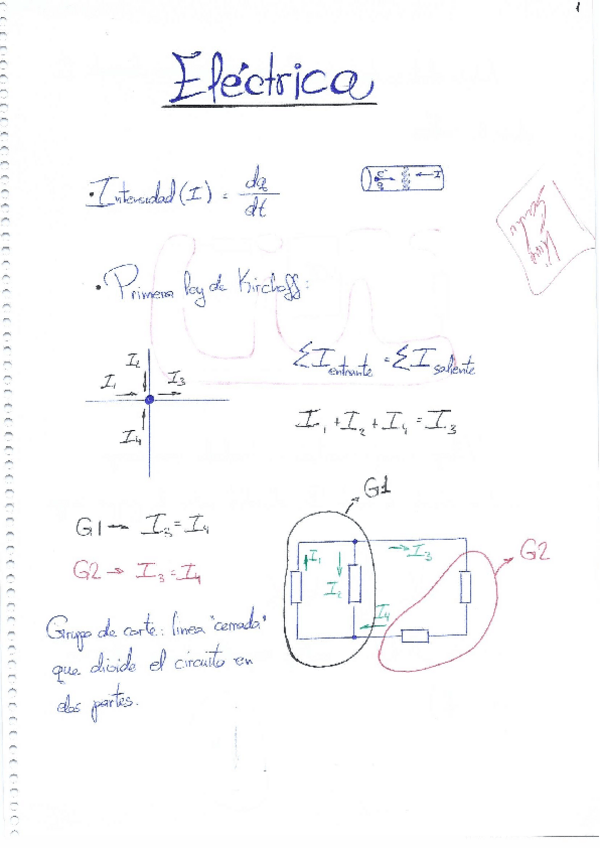 1
Eléctrica
• Intensidad (I) = dq/dt
e⁻ ← I
• Primera ley de Kirchoff:
I₂
I₁ I₃
I₄
ΣI entrante = ΣI saliente
I₁ + I₂ + I₄ = I₃
G1
G1 → I₃ = I₄
G2 → I₃ = I₄
I₁ I₃
I₂
I₄
G2
Grupo de corte: linea "cerrada"
que divide el circuito en
dos partes.